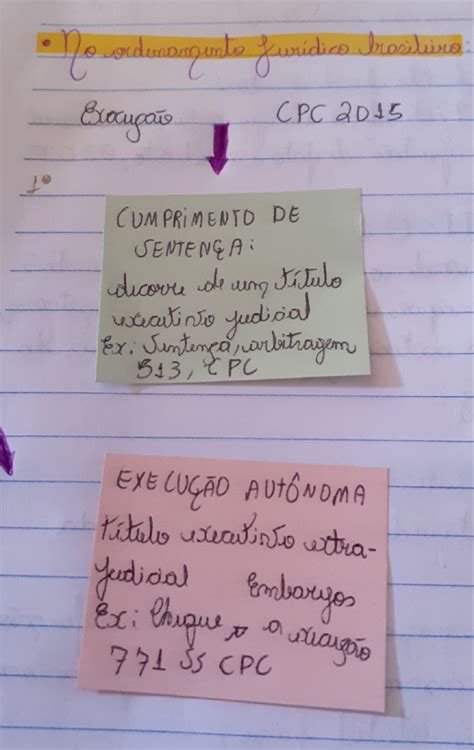 • No ordenamento jurídico brasileiro:
Execução CPC 2015
1º
CUMPRIMENTO DE
SENTENÇA:
decorre de um título
executivo judicial
Ex: Sentença, arbitragem
513, CPC
EXECUÇÃO AUTÔNOMA
título executivo extra-
judicial Embargos
Ex: Cheque a execução
771 SS CPC